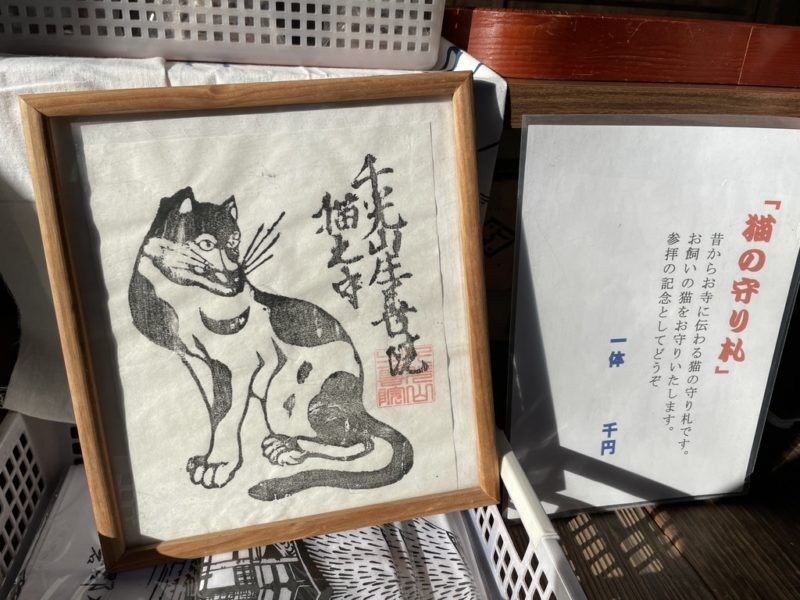 千光山生善院
猫之守
「猫の守り札」
昔からお寺に伝わる猫の守り札です。
お飼いの猫をお守りいたします。
参拝の記念としてどうぞ
一体　千円